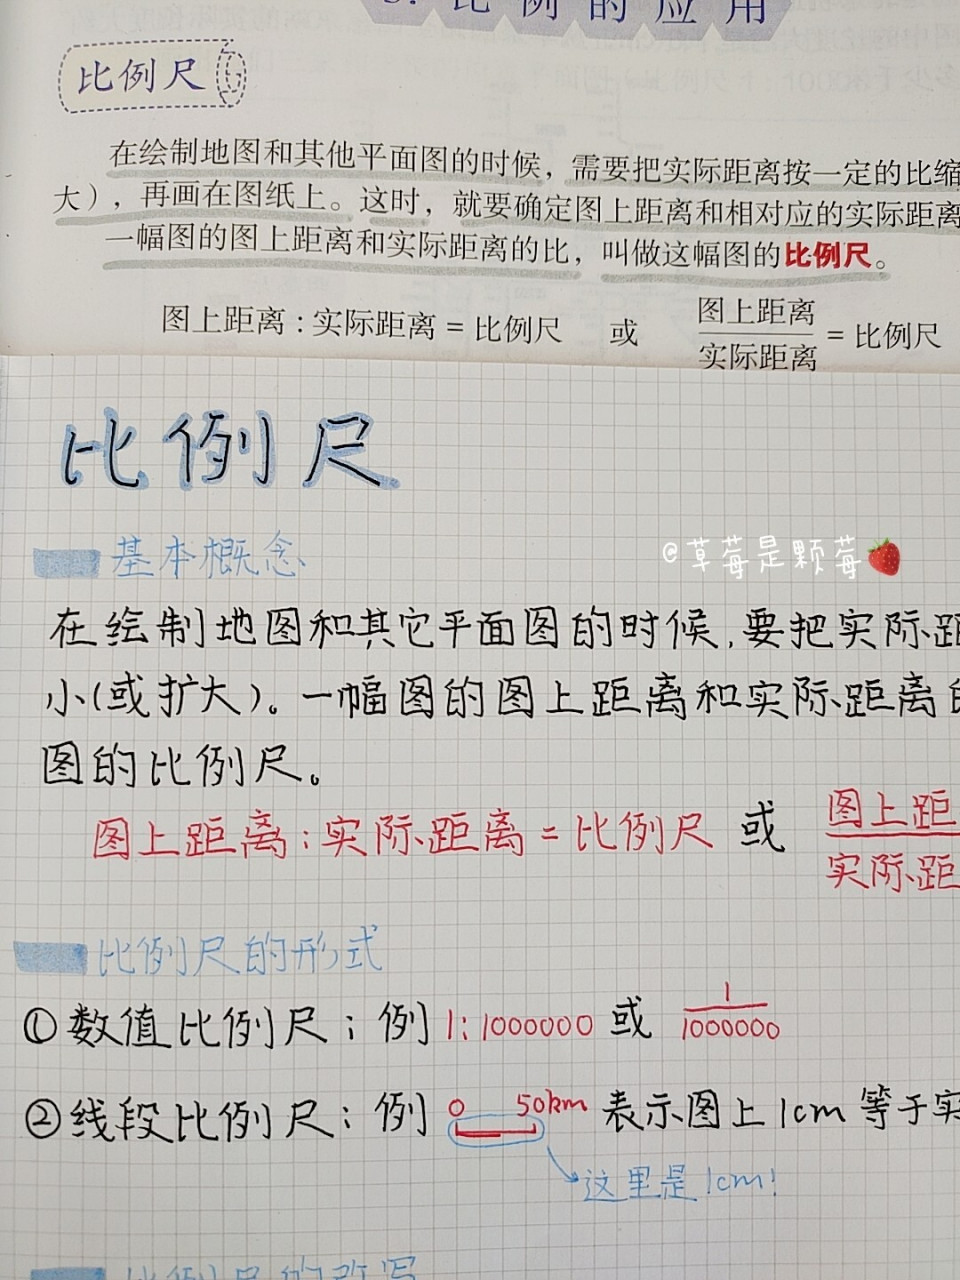 3. 比例的应用
比例尺
在绘制地图和其他平面图的时候，需要把实际距离按一定的比缩
大），再画在图纸上。这时，就要确定图上距离和相对应的实际距离
一幅图的图上距离和实际距离的比，叫做这幅图的比例尺。
图上距离：实际距离 = 比例尺 或 图上距离/实际距离 = 比例尺
比例尺
基本概念
@草莓是颗莓🍓
在绘制地图和其它平面图的时候,要把实际距
小(或扩大)。一幅图的图上距离和实际距离的
图的比例尺。
图上距离:实际距离=比例尺 或 图上距/实际距
比例尺的形式
①数值比例尺；例 1:1000000 或 1/1000000
②线段比例尺；例 0 50km 表示图上1cm等于实
这里是1cm!
比例尺的改写